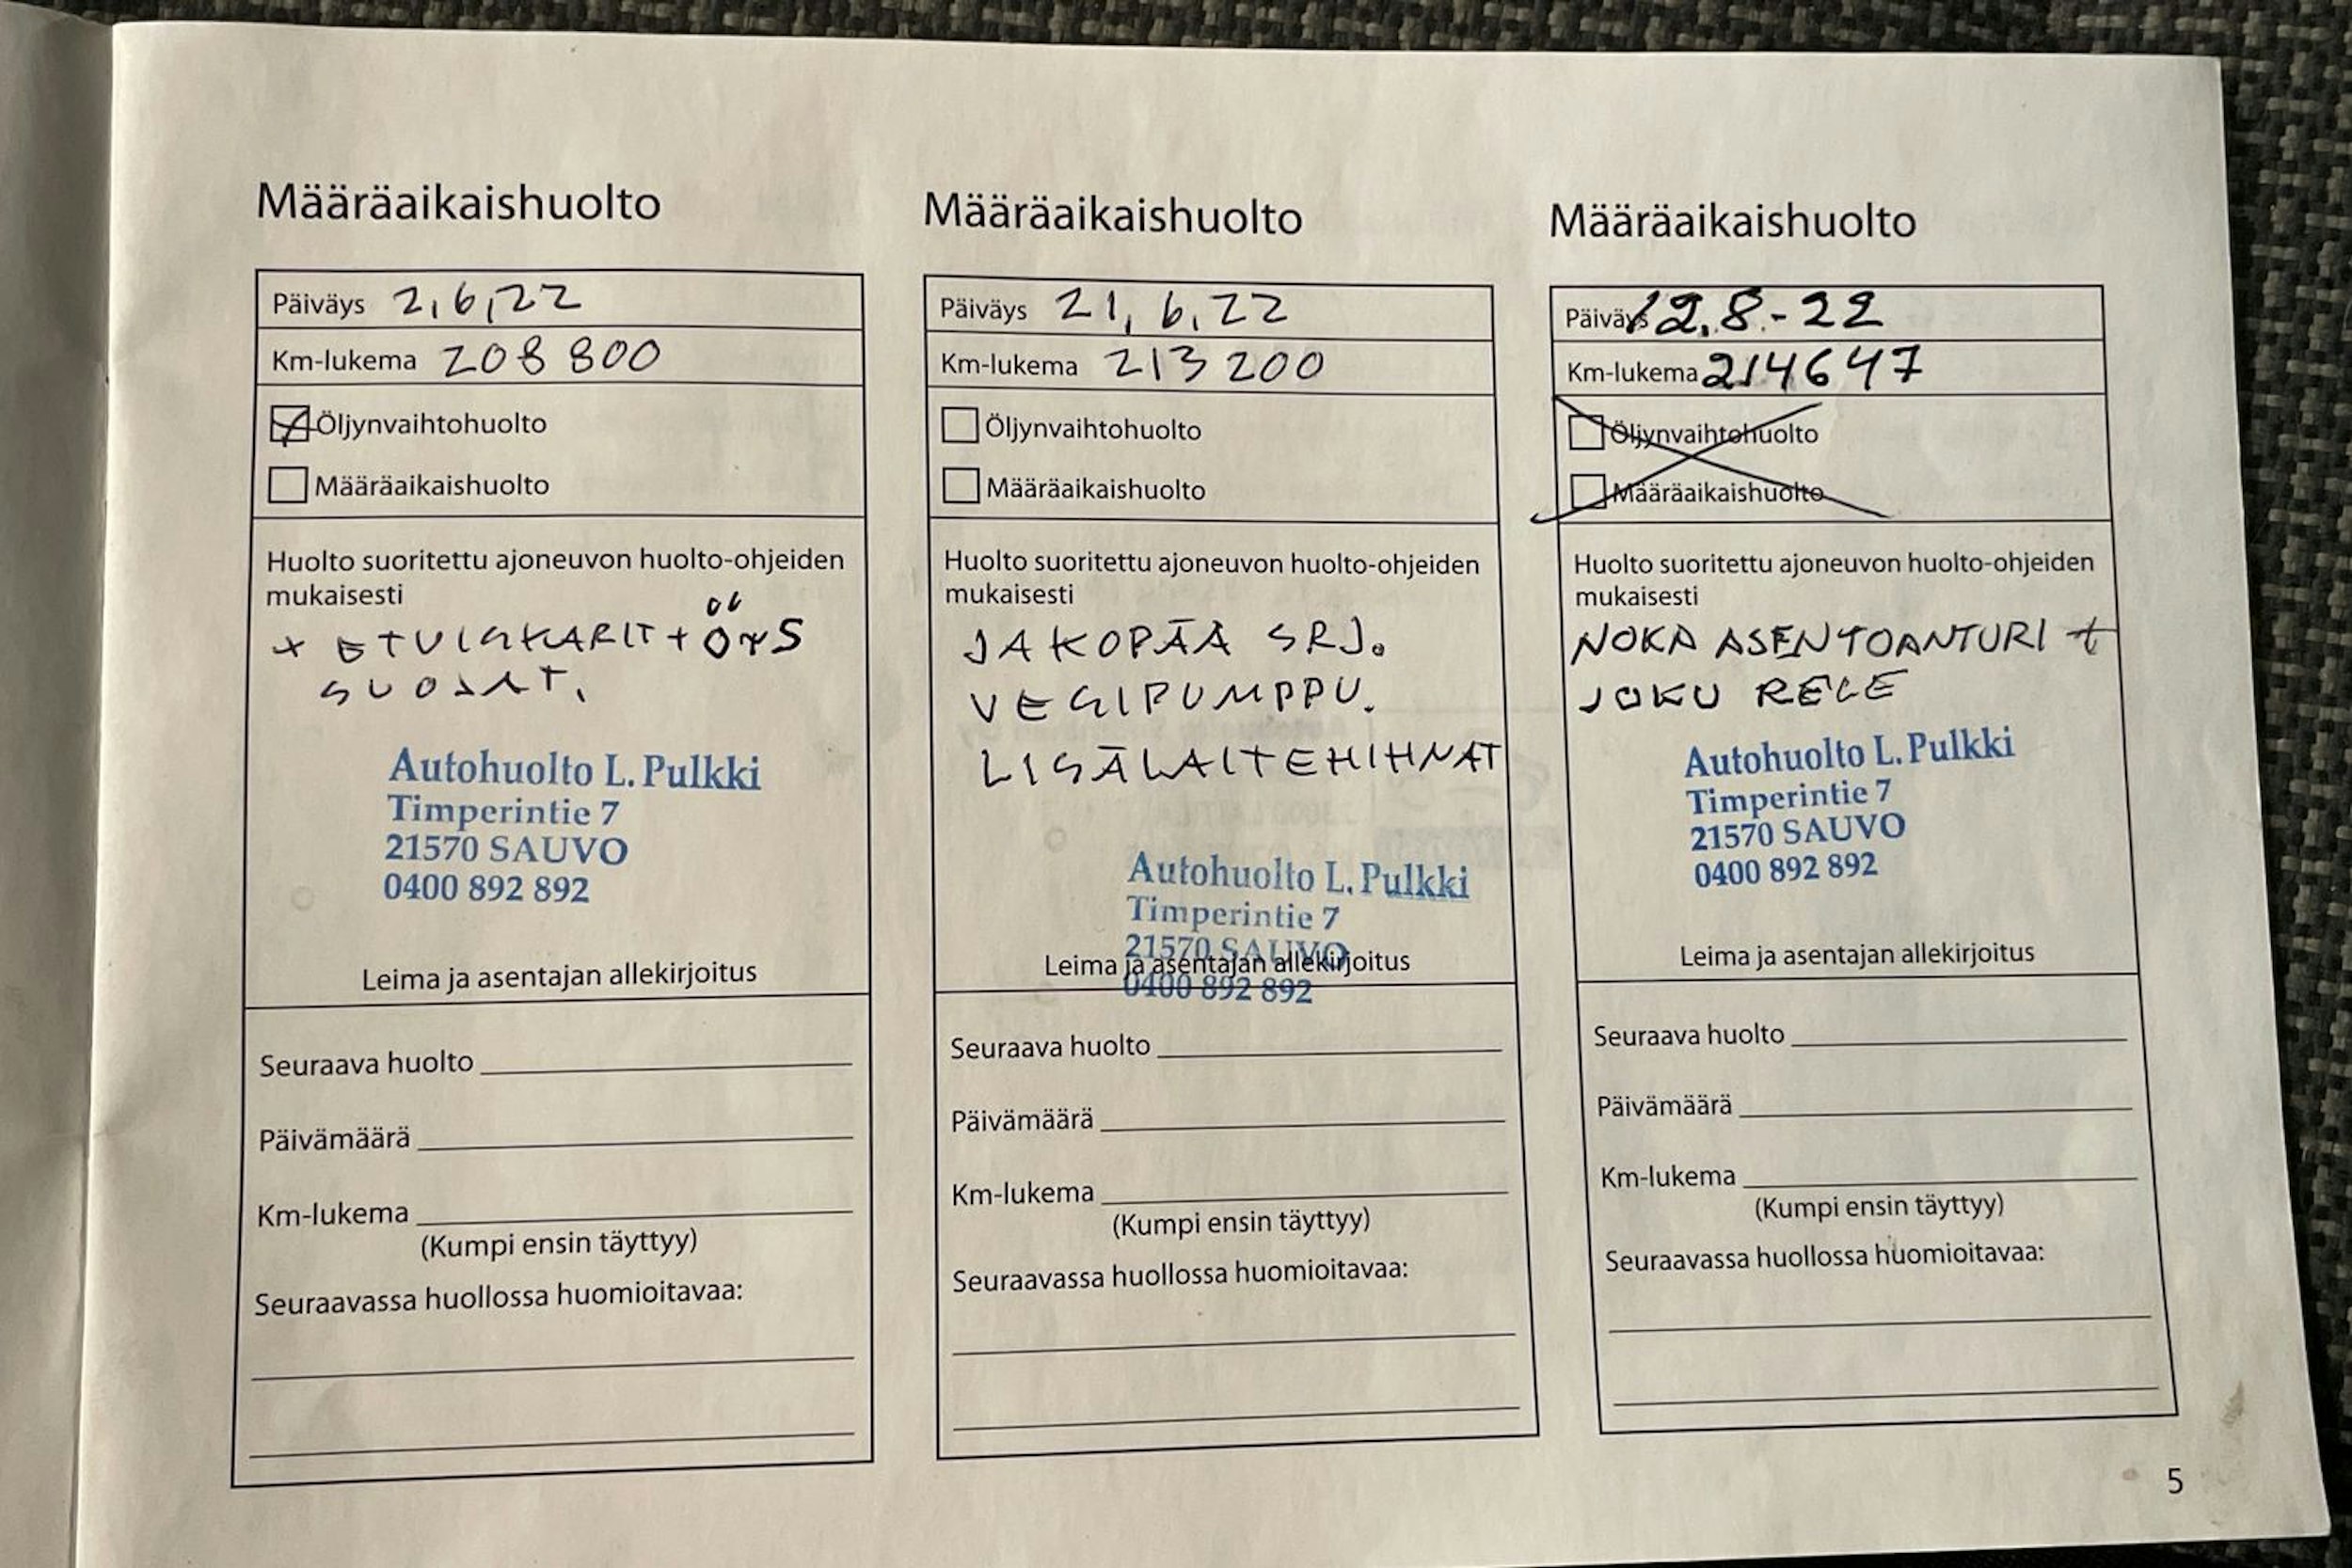 Määräaikaishuolto
Päiväys 2,6,22
Km-lukema 208 800
Öljynvaihtohuolto
Määräaikaishuolto
Huolto suoritettu ajoneuvon huolto-ohjeiden
mukaisesti
+ ETUISKARIT +
SUOJAT.
Autohuolto L. Pulkki
Timperintie 7
21570 SAUVO
0400 892 892
Leima ja asentajan allekirjoitus
Seuraava huolto
Päivämäärä
Km-lukema
(Kumpi ensin täyttyy)
Seuraavassa huollossa huomioitavaa:
Määräaikaishuolto
Päiväys 21, 6, 22
Km-lukema 213 200
Öljynvaihtohuolto
Määräaikaishuolto
Huolto suoritettu ajoneuvon huolto-ohjeiden
mukaisesti
JAKOPÄÄ SRJ.
VESIPUMPPU.
LISÄLAITEHIHNAT
Autohuolto L. Pulkki
Timperintie 7
21570 SAUVO
Leima ja asentajan allekirjoitus
0400 892 892
Seuraava huolto
Päivämäärä
Km-lukema
(Kumpi ensin täyttyy)
Seuraavassa huollossa huomioitavaa:
Määräaikaishuolto
Päiväys 12.8.-22
Km-lukema 214647
Öljynvaihtohuolto
Määräaikaishuolto
Huolto suoritettu ajoneuvon huolto-ohjeiden
mukaisesti
NOKA ASENTOANTURI +
JOKU RELE
Autohuolto L. Pulkki
Timperintie 7
21570 SAUVO
0400 892 892
Leima ja asentajan allekirjoitus
Seuraava huolto
Päivämäärä
Km-lukema
(Kumpi ensin täyttyy)
Seuraavassa huollossa huomioitavaa:
5